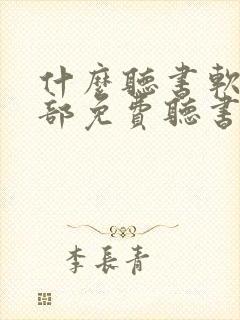 什麼聽書軟
部免費聽書
李長青